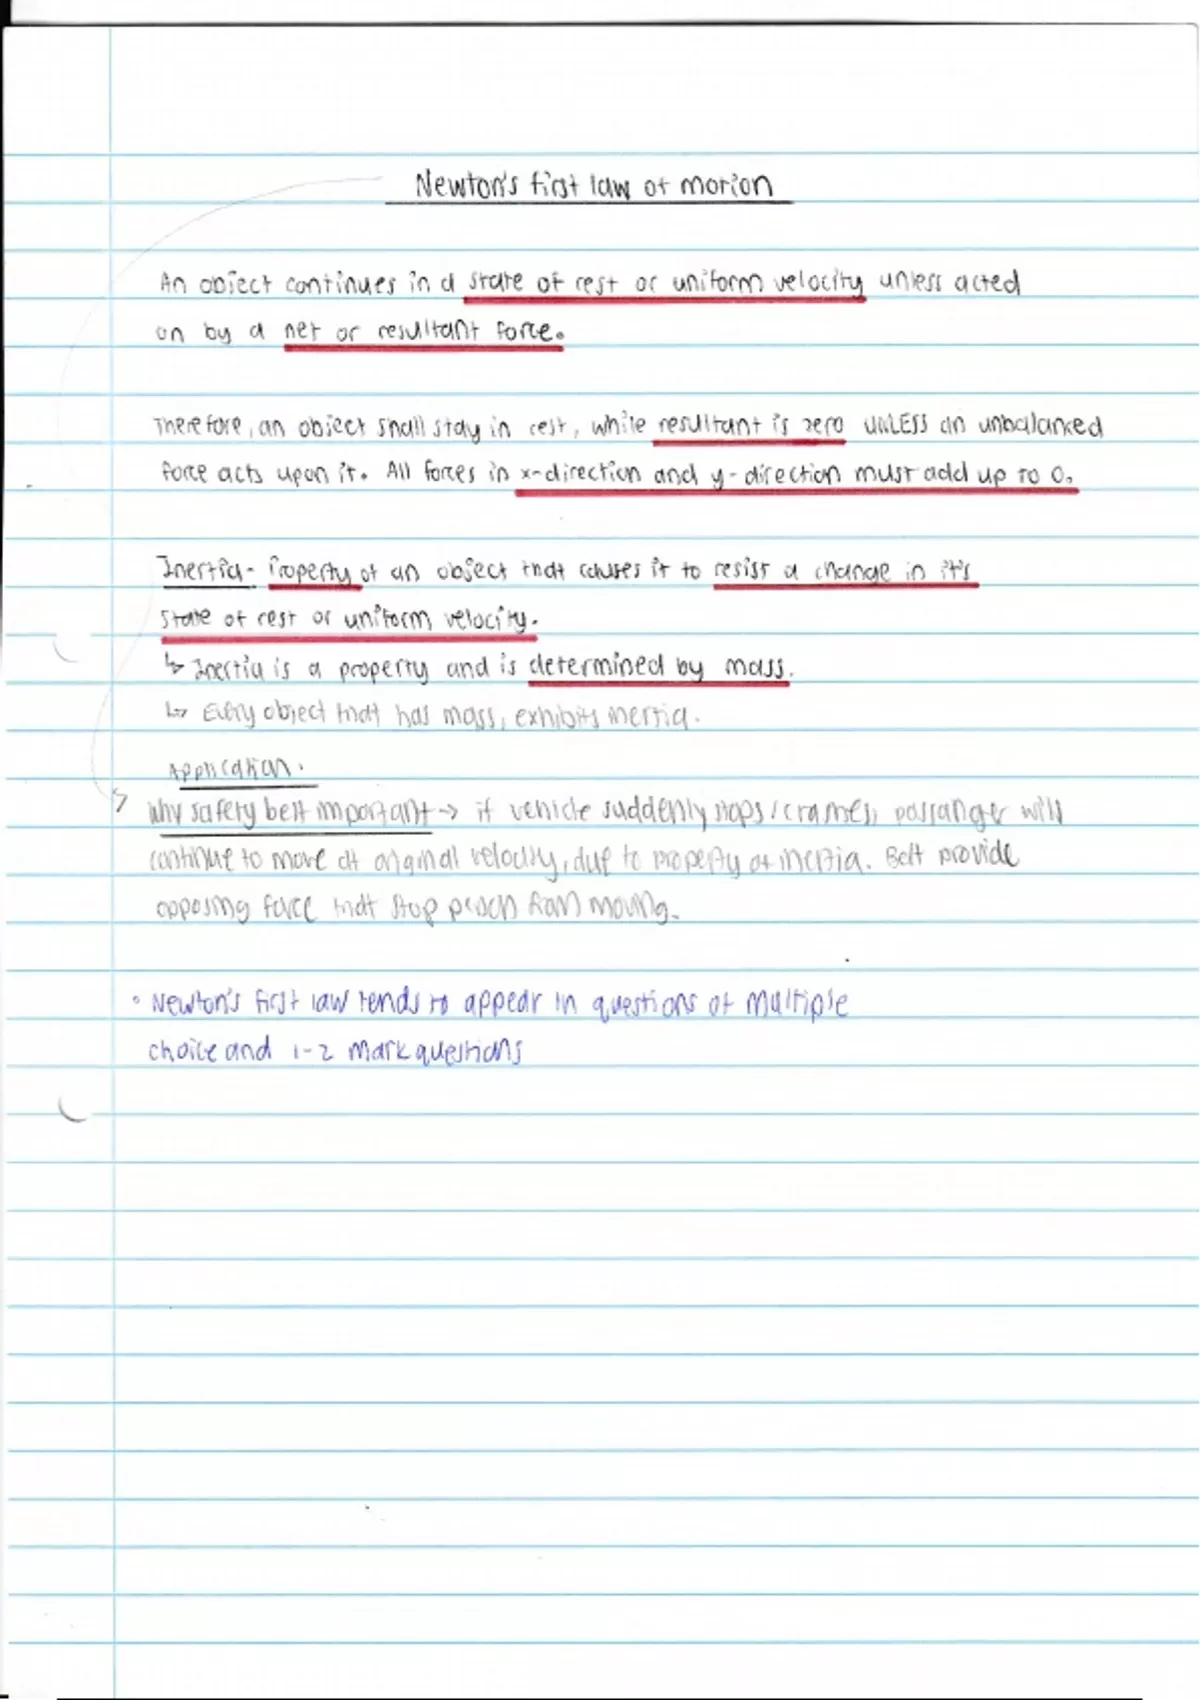 Newton's first law of motion
An object continues in a state of rest or uniform velocity unless acted
on by a net or resultant force.
Therefore, an object shall stay in rest, while resultant is zero UNLESS an unbalanced
force acts upon it. All forces in x-direction and y-direction must add up to 0.
Inertia - Property of an object that causes it to resist a change in it's
state of rest or uniform velocity.
↳ Inertia is a property and is determined by mass.
↳ Every object that has mass, exhibits inertia.
Application.
Why safety belt important → if vehicle suddenly stops/crashes, passanger will
continue to move at original velocity, due to property of inertia. Belt provide
opposing force that stop person from moving.
• Newton's first law tends to appear in questions of multiple
choice and 1-2 mark questions